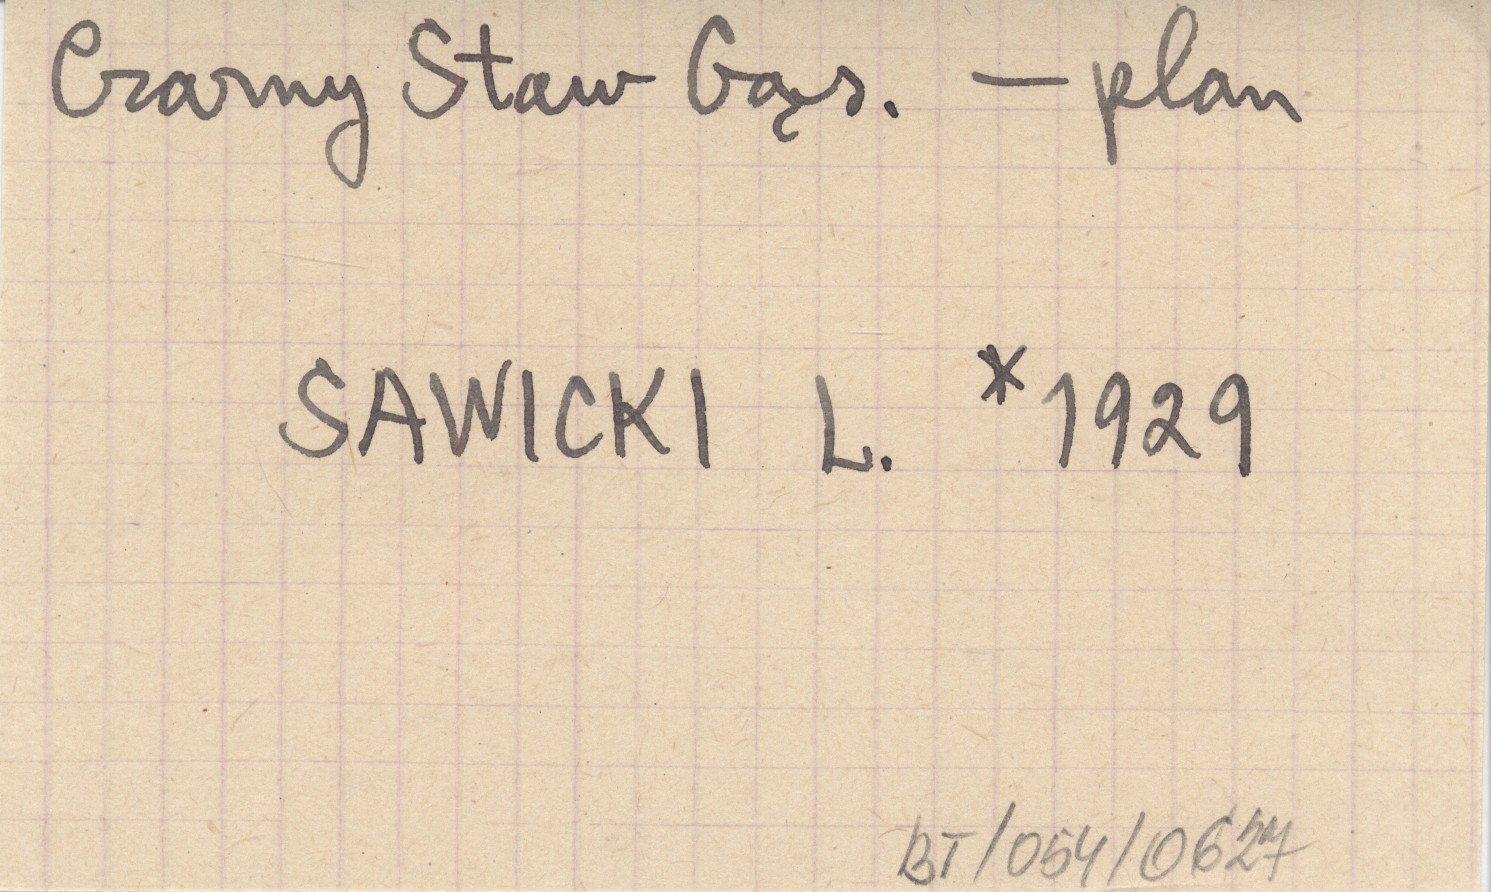 Czarny Staw Gąs. — plan
SAWICKI L. *1929
BT/054/0627